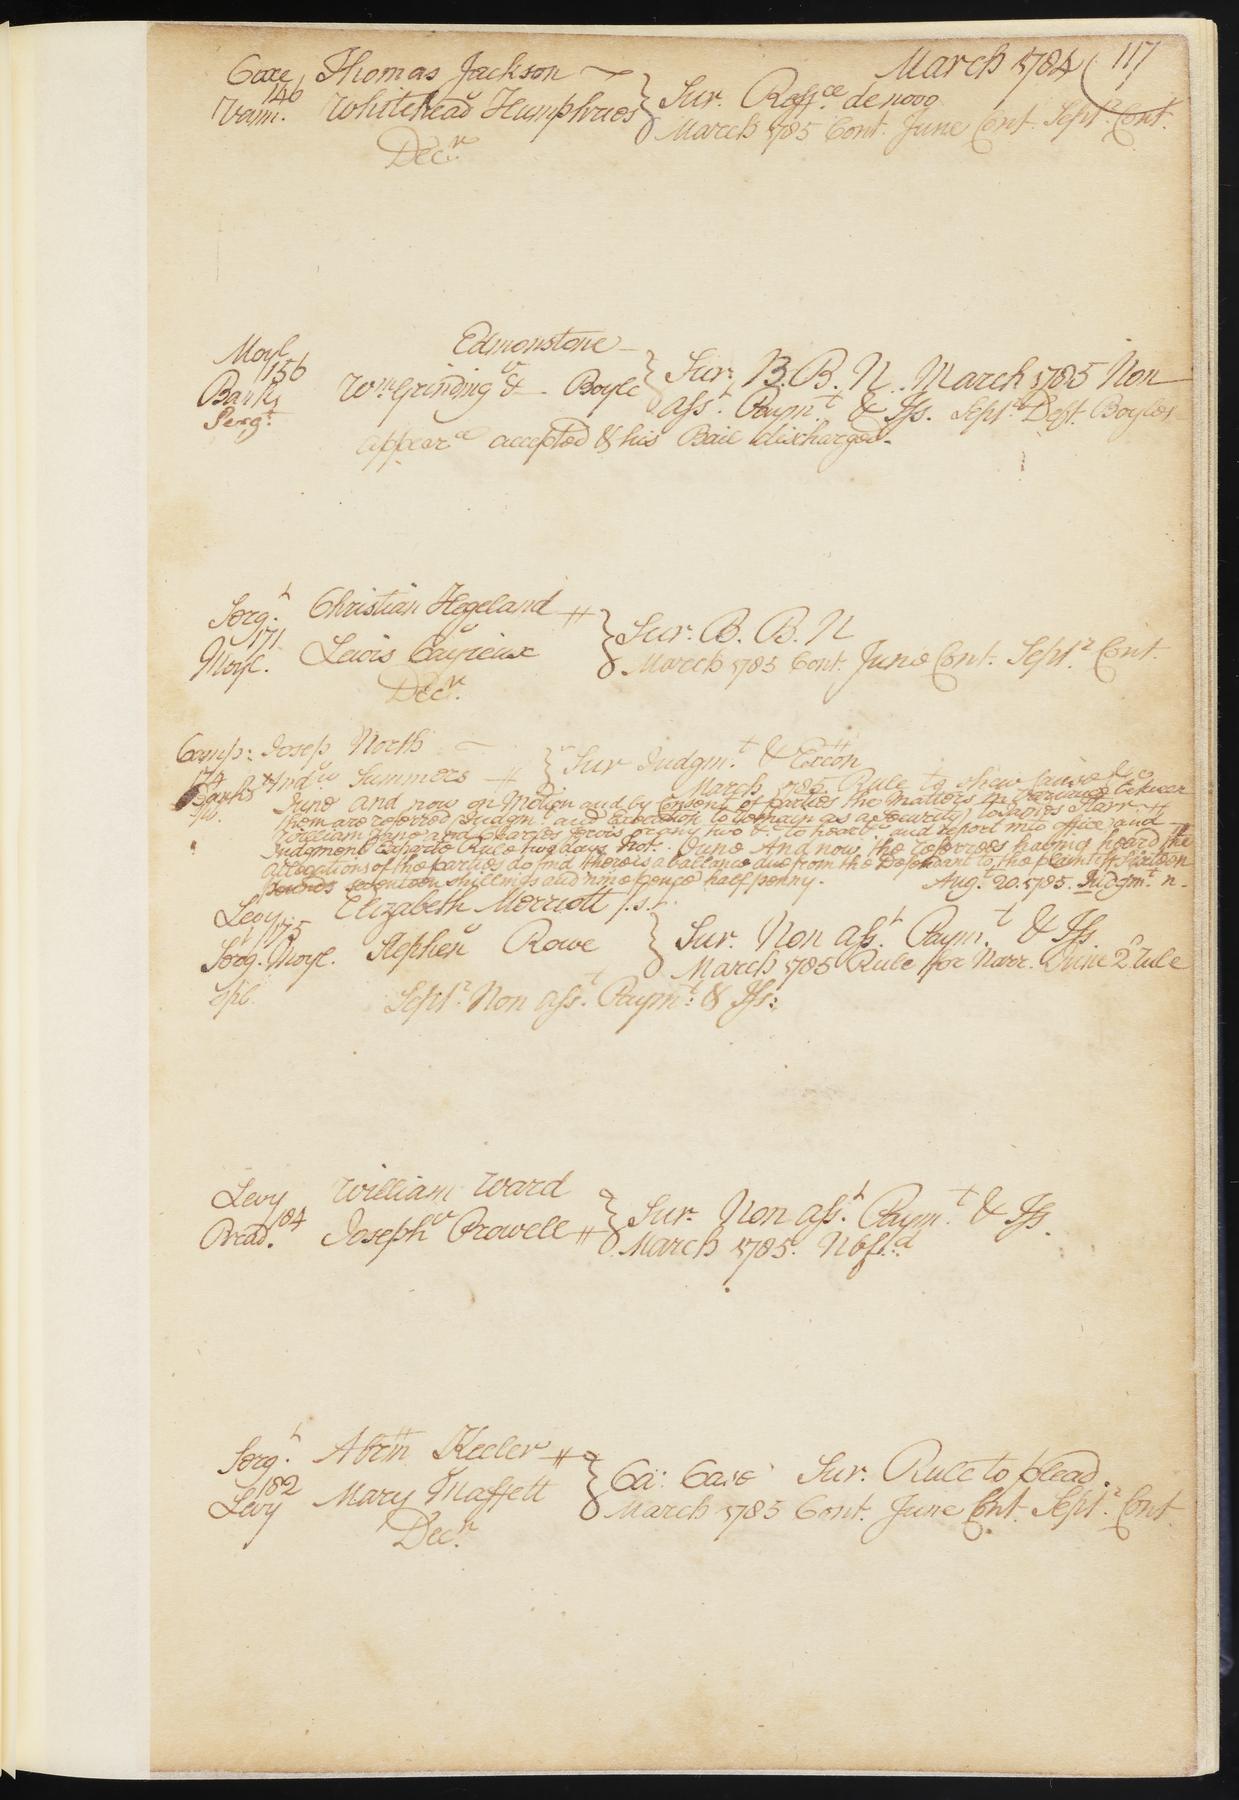 March 1784 ( 117
Coxe Thomas Jackson
146
Vann. v Whitehead Humphries } Sur. Reff.ce denovo
March 1785 Cont. June Cont. Sept.r Cont.
Dec.r
Moyl. Edmonstone
156
Bank. v
Serg.t Wm Grinding & Boyle } Sur. B. B. N. March 1785 Non
ass.t Paym.t & Iss. Sept.r Deft. Boyles
appear.ce accepted & his Bail discharged.
Serg.t Christian Hegeland
171 v
Moyl. Lewis Cayrieux } Sur. B. B. N
March 1785 Cont. June Cont. Sept.r Cont.
Dec.r
Comp: Josep North
174 v
Bank Summers } Sur Judgm.t & Excon
March 1785. Rule to shew Cause &c
June and now on Motion and by Consent of parties the Matters in Variance between
them are referred Judgm.t and Execution to remain as a security to James Starr
William and Charles Jervis or any two &c to hear &c and report into office and
Judgment Exparte Rule two days Not. June And now the referrees having heard the
allegations of the parties do find there is a ballance due from the Defendant to the plaintiff Sixteen
pounds seventeen shillings and nine pence half penny. Aug.t 20. 1785. Judgm.t n.
Levy Elizabeth Merriott
175 v
Serg.t Moyl. Stephen Rowe } Sur. Non ass.t Paym.t & Iss.
March 1785 Rule for Narr. June 2 Rule
Spl. Sept.r Non ass.t Paym.t & Iss:
Levy William Ward
184 v
Brad. Joseph Prowell } Sur. Non ass.t Paym.t & Iss.
March 1785.
Serg.t Abrm Keeler
182 v
Levy Mary Maffett } Ca: Case Sur. Rule to plead.
March 1785 Cont. June Cont. Sept.r Cont.
Dec.r